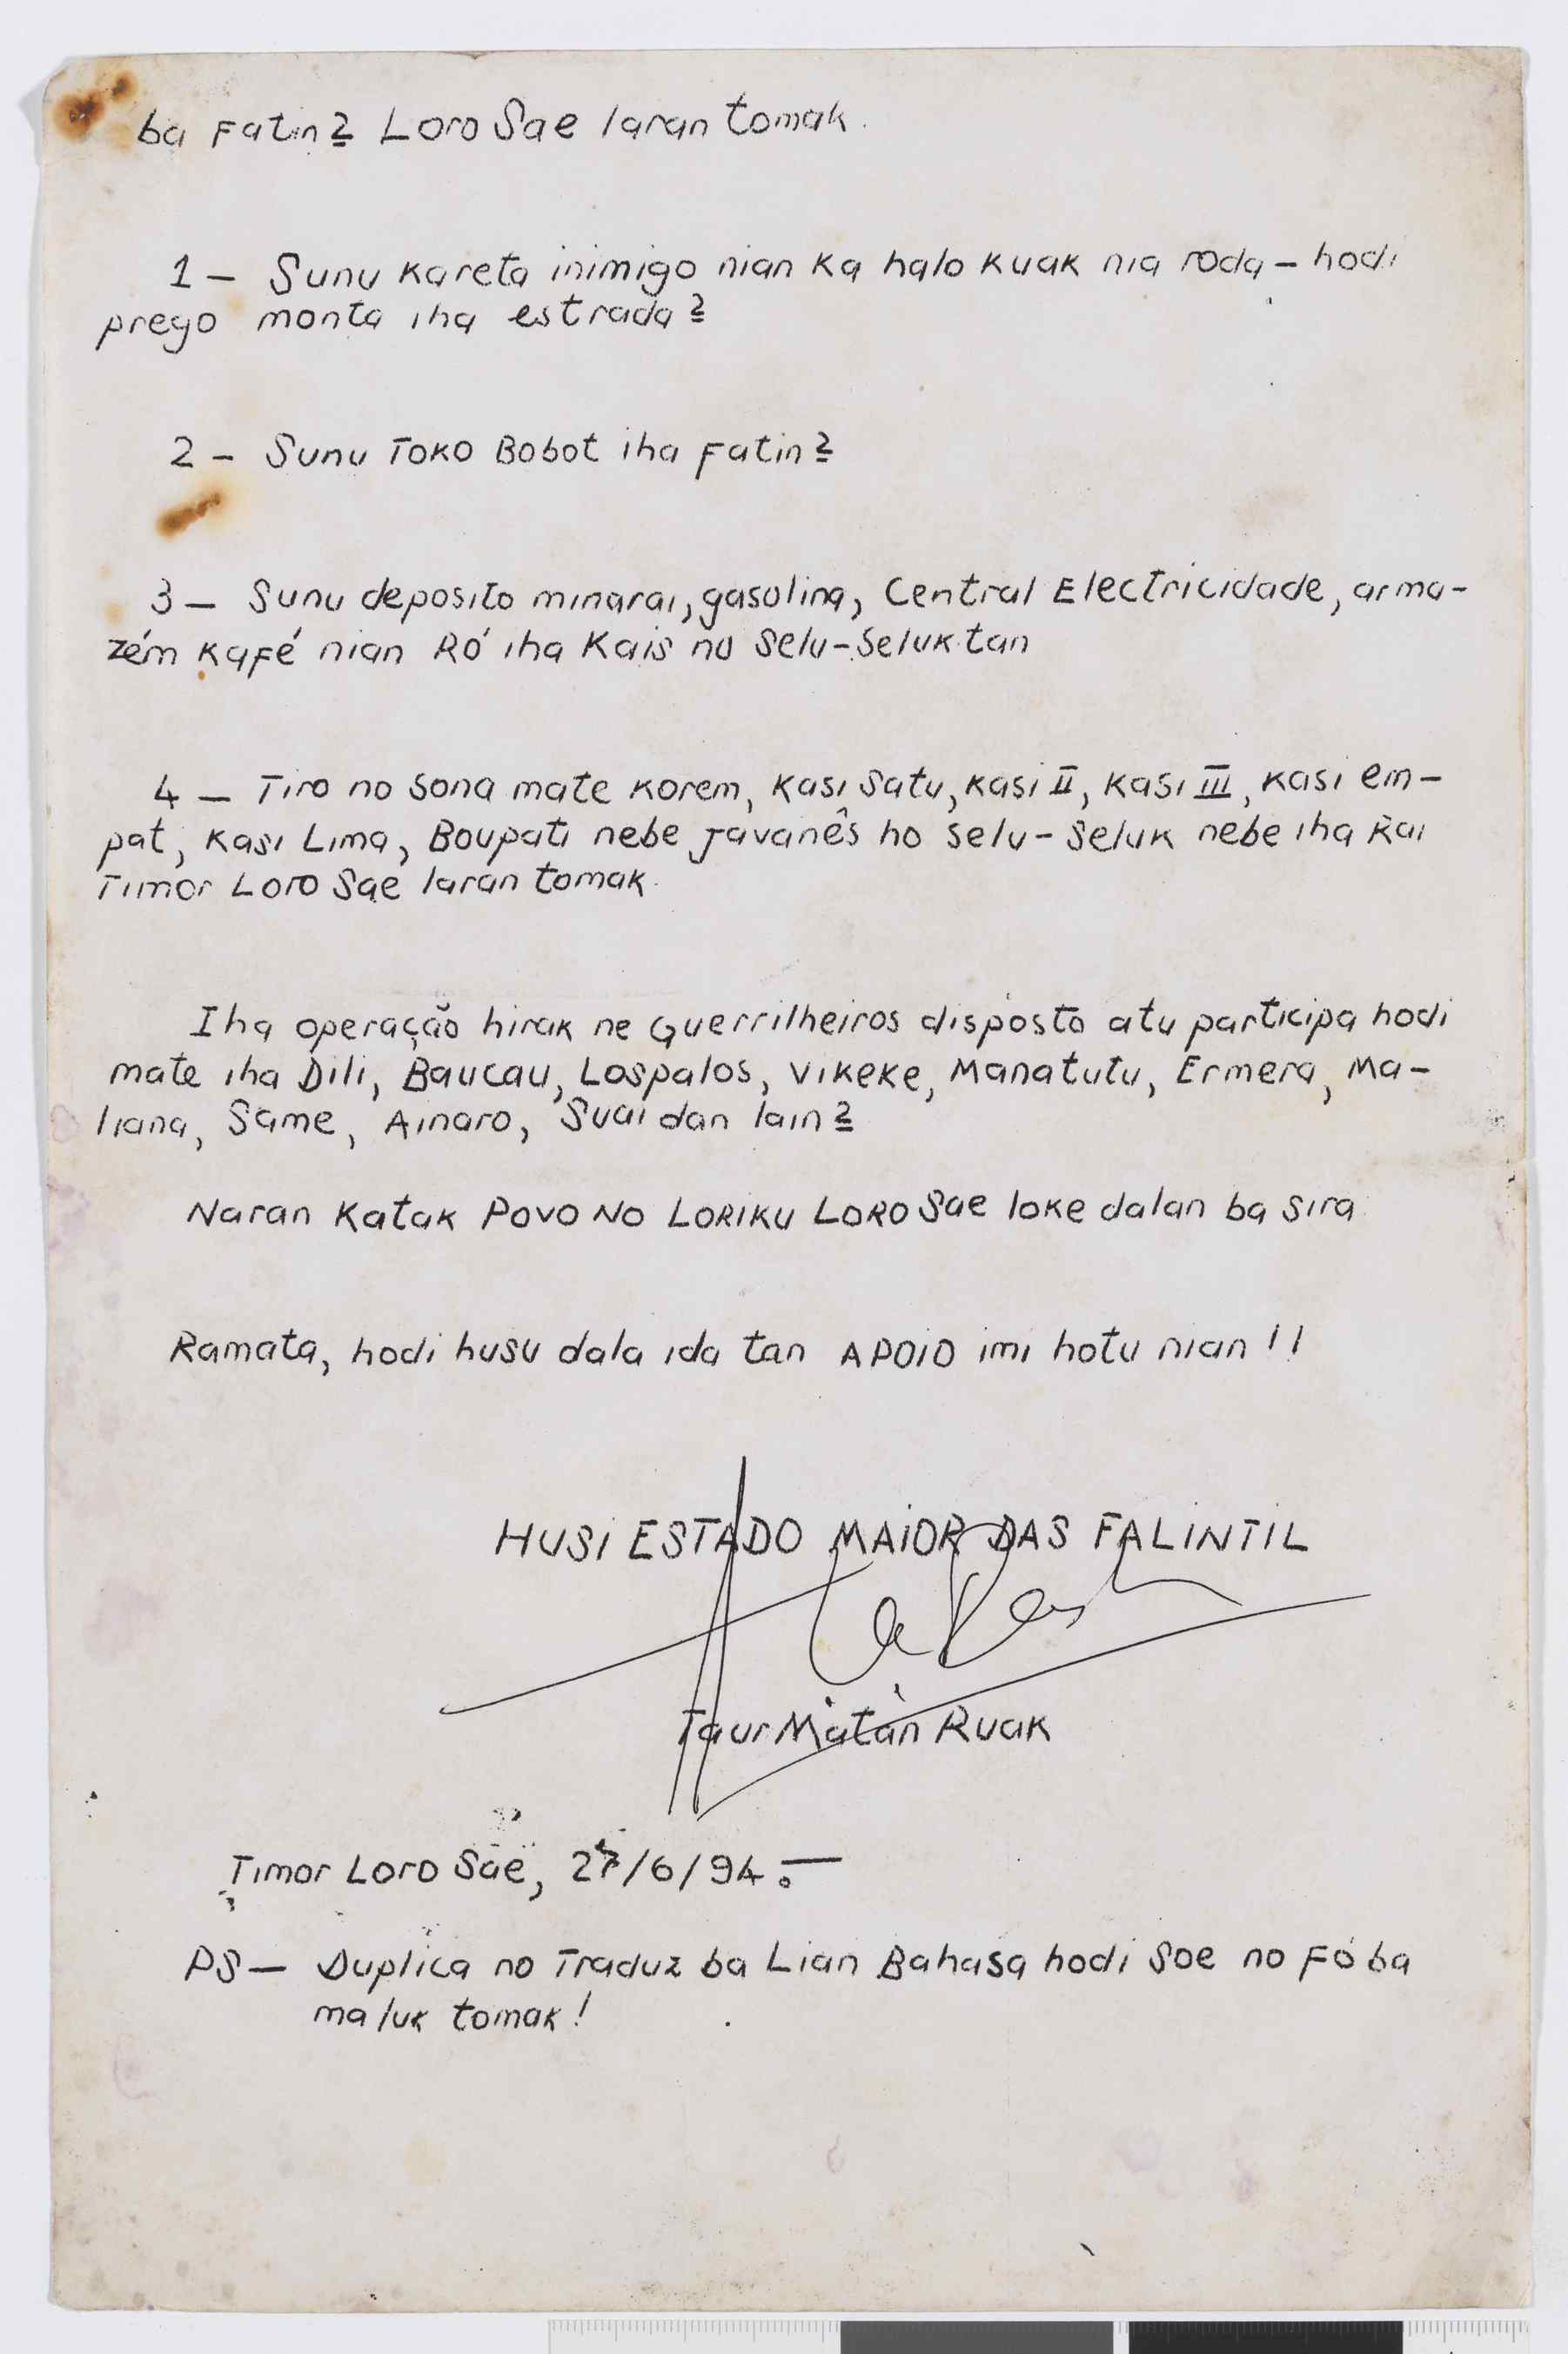 ba Fatin2 Loro Sae laran tomak.
1 – Sunu kareta inimigo nian ka halo kuak nia roda – hodi
prego monta iha estrada2
2 – Sunu Toko Bobot iha Fatin2
3 – Sunu deposito minarai, gasolina, Central Electricidade, arma-
zém kafé nian Ró iha Kais no Selu-Seluk tan
4 – Tiro no sona mate korem, Kasi Satu, kasi II, Kasi III, kasi em-
pat, Kasi Lima, Boupati nebe Javanês ho selu-seluk nebe iha Rai
Timor Loro Sae laran tomak.
Iha operação hirak ne Guerrilheiros disposto atu participa hodi
mate iha Dili, Baucau, Lospalos, Vikeke, Manatutu, Ermera, Ma-
liana, Same, Ainaro, Suai dan lain2
Naran Katak Povo No LORIKU LORO Sae loke dalan ba sira.
Ramata, hodi husu dala ida tan APOIO imi hotu nian!!
HUSI ESTADO MAIOR DAS FALINTIL
Taur Matan Ruak
Timor Loro Sae, 27/6/94.—
PS — Duplica no Traduz ba Lian Bahasa hodi Soe no Fó ba
maluk tomak!